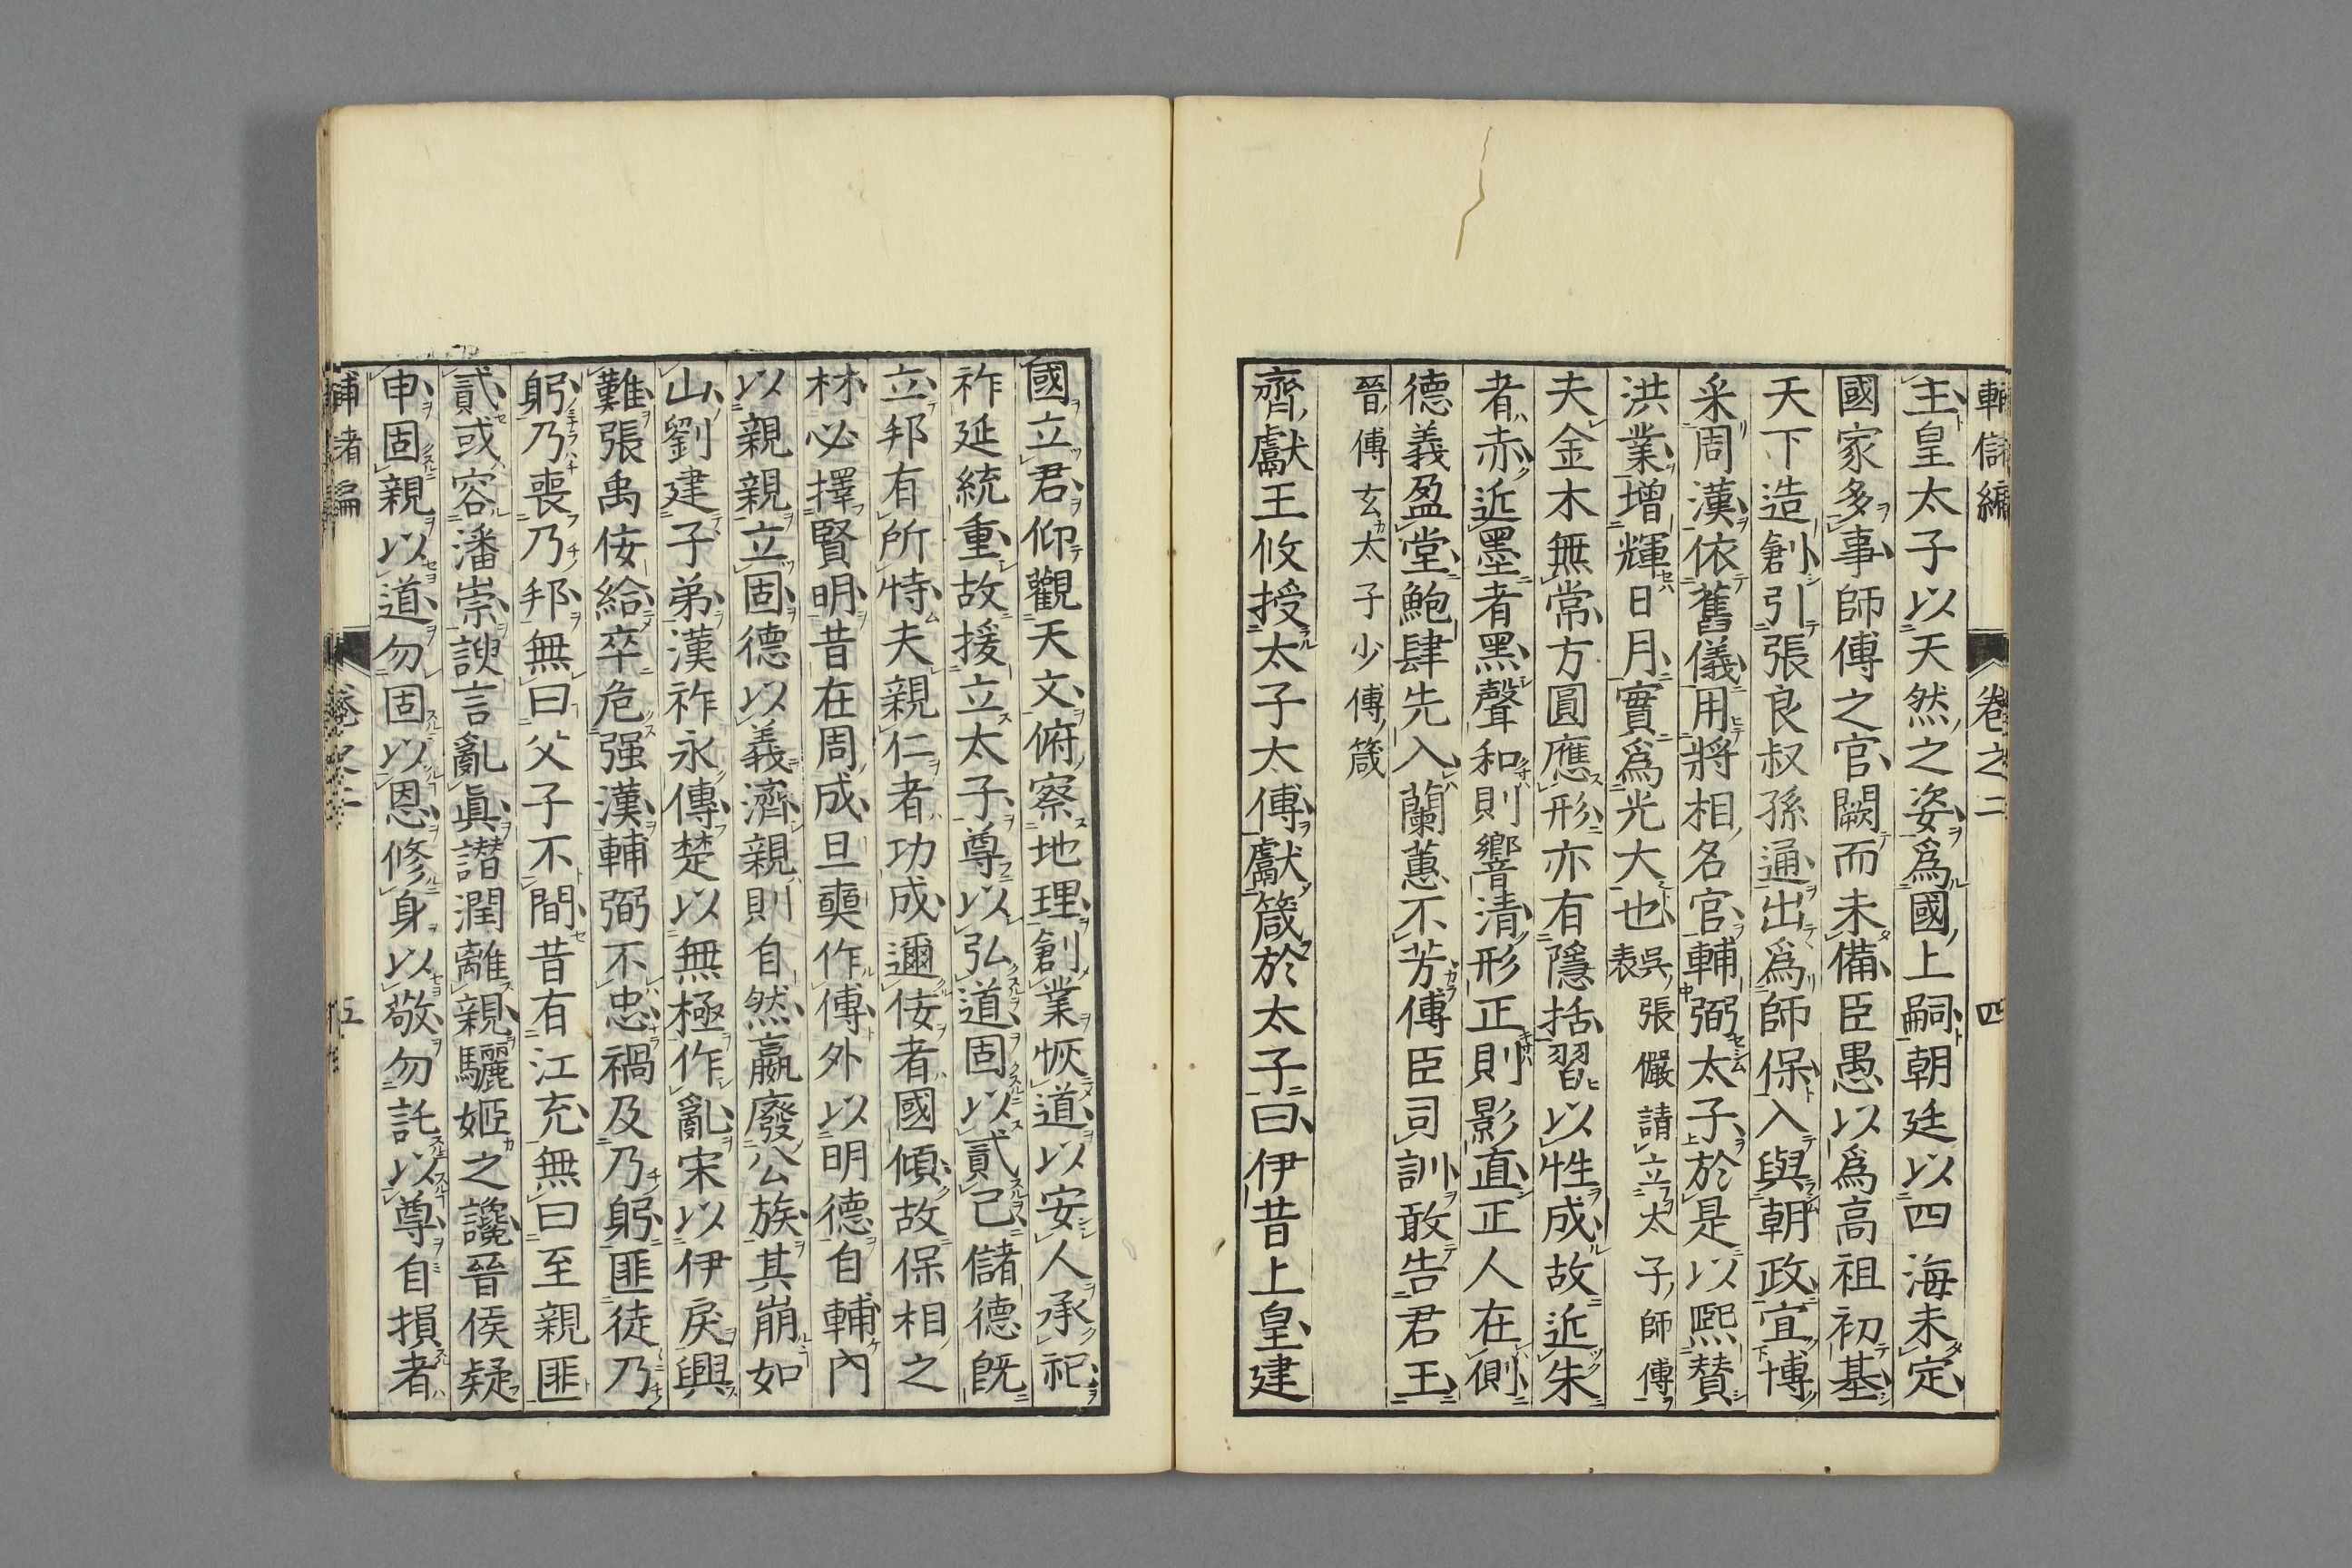 輔儲編 卷之二 四
主皇太子以天然之姿爲國上嗣朝廷以四海未定
國家多事師傅之官闕而未備臣愚以爲高祖初基
天下造創引張良叔孫通出爲師保入與朝政宜博
采周漢依舊儀用將相名官輔弼太子於是以熙賛
洪業增輝日月實爲光大也吳張儼請立太子師傅表
夫金木無常方圓應形亦有隱括習以性成故近朱
者赤近墨者黑聲和則響清形正則影直正人在側
德義盈堂鮑肆先入蘭蕙不芳傅臣司訓敢告君王
晉傅玄太子少傅箴
齊獻王攸授太子太傅獻箴於太子曰伊昔上皇建
國立君仰觀天文俯察地理創業恢道以安人承祀
祚延統重故援立太子尊以弘道固以貳己儲德旣
立邦有所恃夫親仁者功成邇佞者國傾故保相之
材必擇賢明昔在周成旦奭作傅外以明德自輔內
以親親立固德以義濟親則自然嬴廢公族其崩如
山劉建子弟漢祚永傳楚以無極作亂宋以伊戾興
難張禹佞給卒危强漢輔弼不忠禍及乃躬匪徒乃
躬乃喪乃邦無曰父子不間昔有江充無曰至親匪
貳或容潘崇諛言亂眞譖潤離親驪姬之讒晉侯疑
申固親以道勿固以恩修身以敬勿託以尊自損者
輔儲編 卷之二 五